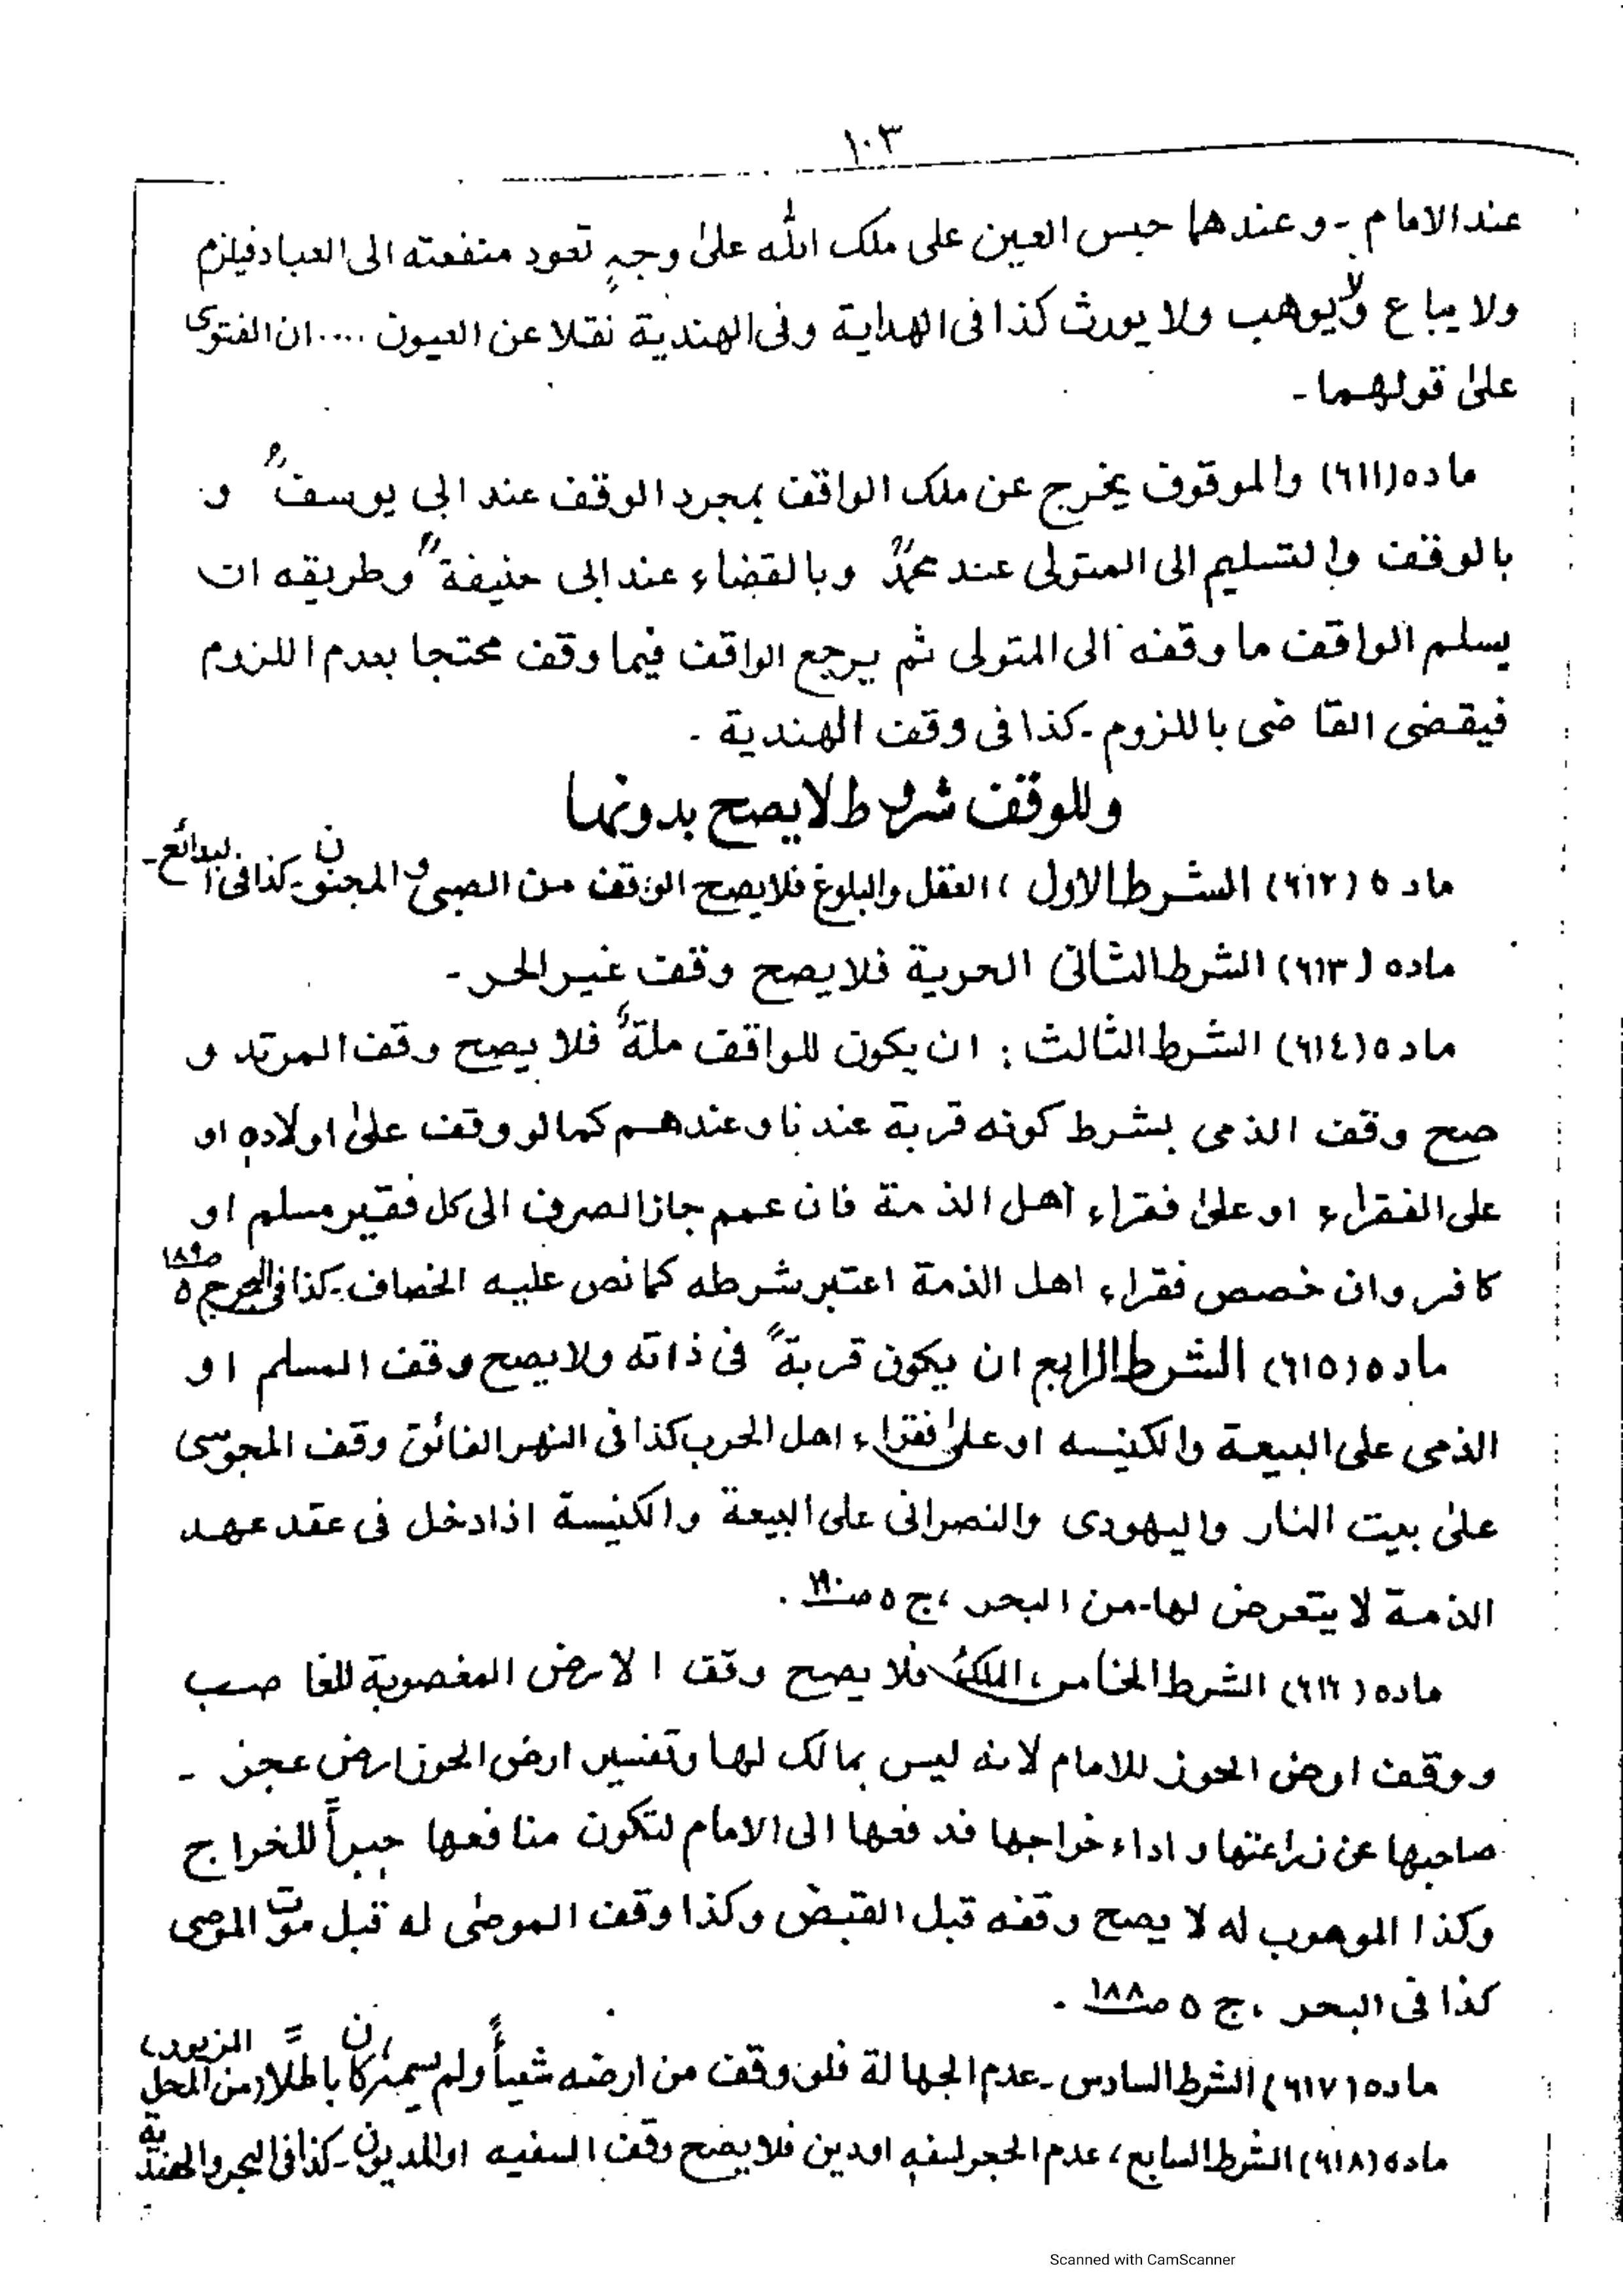 ١٠٣
عند الامام ـ وعندهما حبس العين على ملک الله علىٰ وجہٍ تعود منفعته الى العباد فيلزم
ولا يباع ولا يوهب ولا يورث كذا فى الهداية وفى الهندية نقلا عن العيون .... ان الفتوى
علىٰ قولهما ـ
ماده (٦١١) والموقوف يخرج عن ملک الواقف بمجرد الوقف عند ابى يوسفؒ و
بالوقف والتسليم الى المتولى عند محمدؒ وبالقضاء عند ابى حنيفةؒ وطريقه ان
يسلم الواقف ما وقفه الى المتولى ثم يرجع الواقف فيما وقف محتجا بعدم اللزوم
فيقضى القاضى باللزوم ـ كذا فى وقف الهندية ـ
وللوقف شروط لا يصح بدونها
ماده (٦١٢) الشرط الاول ، العقل والبلوغ فلا يصح الوقف من الصبى والمجنون ـ كذا فى البدائع ـ
ماده (٦١٣) الشرط الثانى الحرية فلا يصح وقف غير الحر ـ
ماده (٦١٤) الشرط الثالث : ان يكون للواقف ملةٌ فلا يصح وقف المرتد و
صح وقف الذمى بشرط كونه قربة عندنا وعندهم كما لو وقف علىٰ اولاده او
على الفقراء او علىٰ فقراء اهل الذمة فان عمم جاز الصرف الى كل فقير مسلم او
كافر وان خصص فقراء اهل الذمة اعتبر شرطه كما نص عليه الخصاف ـ كذا فى البحر ج ٥ ص١٨٩
ماده (٦١٥) الشرط الرابع ان يكون قربةً فى ذاته ولا يصح وقف المسلم او
الذمى على البيعة والكنيسه او علىٰ فقراء اهل الحرب كذا فى النهر الفائق وقف المجوسى
علىٰ بيت النار واليهودى والنصرانى على البيعة والكنيسة اذا دخل فى عقد عهد
الذمة لا يتعرض لها ـ من البحر ، ج ٥ ص١٩٠ .
ماده (٦١٦) الشرط الخامس ، الملک فلا يصح وقف الارض المغصوبة للغاصب
ووقف ارض الحوز للامام لانه ليس بمالک لها وتفسير ارض الحوز ارض عجز ـ
صاحبها عن زراعتها و اداء خراجها فدفعها الى الامام لتكون منافعها جبراً للخراج
وكذا الموهوب له لا يصح وقفه قبل القبض وكذا وقف الموصىٰ له قبل موت الموصى
كذا فى البحر ، ج ٥ ص١٨٨ ـ
ماده (٦١٧) الشرط السادس ـ عدم الجهالة فلو وقف من ارضه شيئاً ولم يسمه كان باطلاً (من المحل المزبور)
ماده (٦١٨) الشرط السابع ، عدم الحجر لسفه او دين فلا يصح وقف السفيه او المديون ـ كذا فى البحر والهندية
Scanned with CamScanner